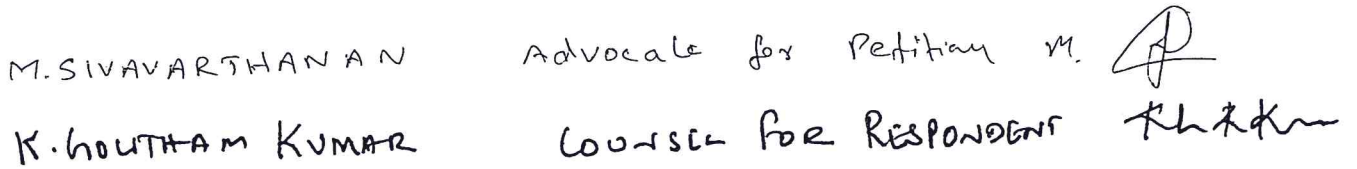 M. SIVAVARTHANAN Advocate for Petition M.
K. GOUTHAM KUMAR COUNSEL FOR RESPONDENT